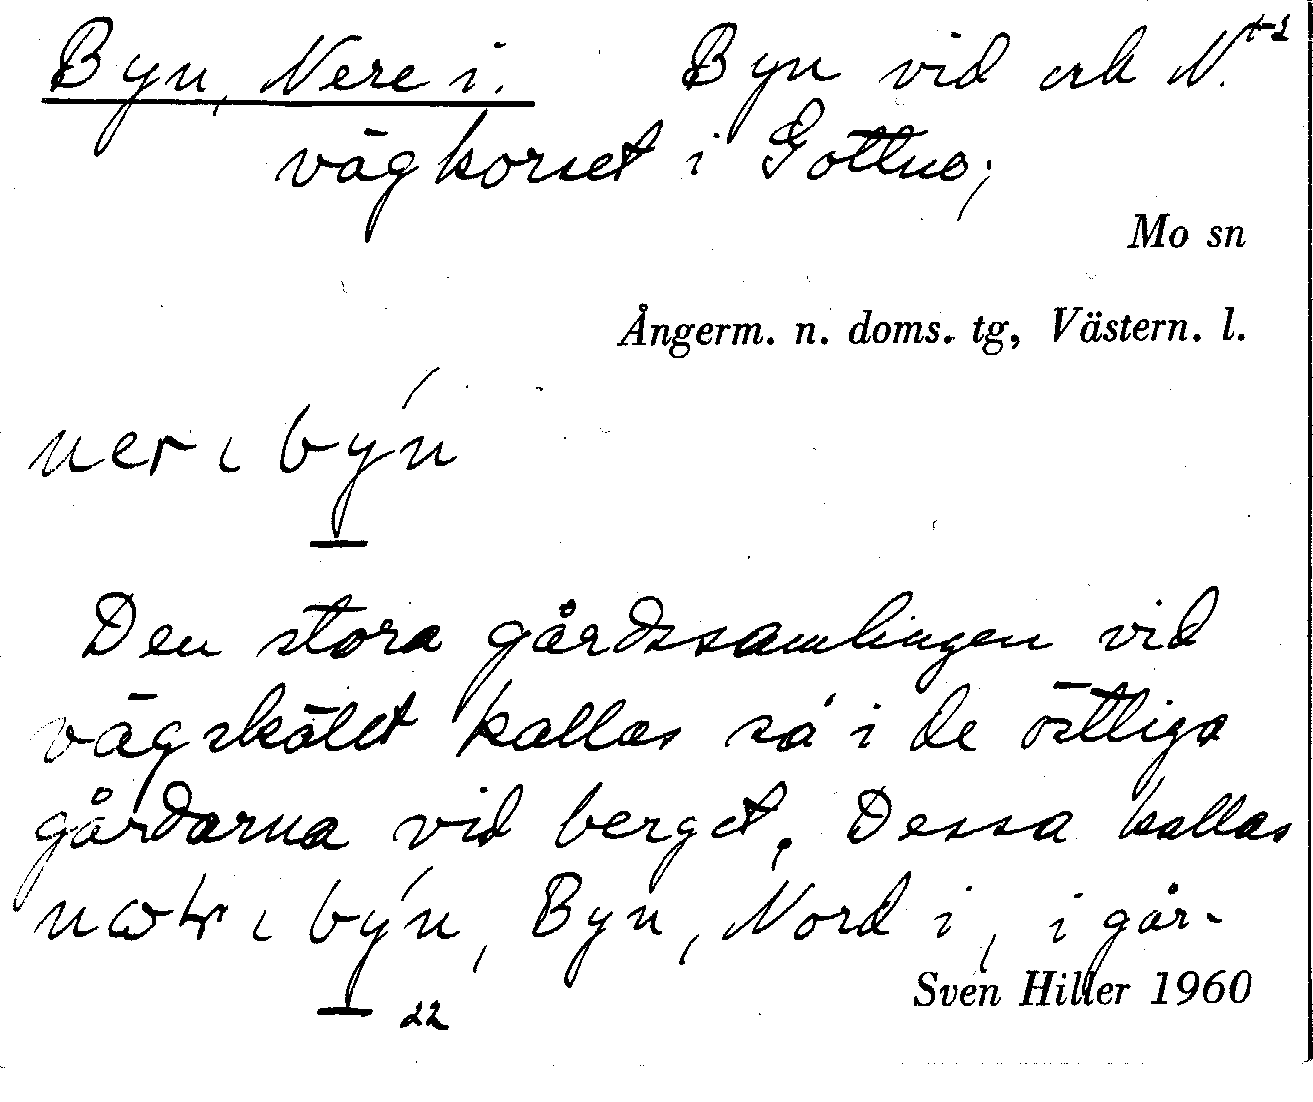 Byn, Nere i. Byn vid och N. t-2
vägkorset i Gottne;
Mo sn
Ångerm. n. doms. tg, Västern. l.
ner ɩ by´n
Den stora gårdssamlingen vid
vägskälet kallas så i de östliga
gårdarna vid berget. Dessa kallas
ɩ by´n, Byn, Nord i, i går-
Sven Hiller 1960
22